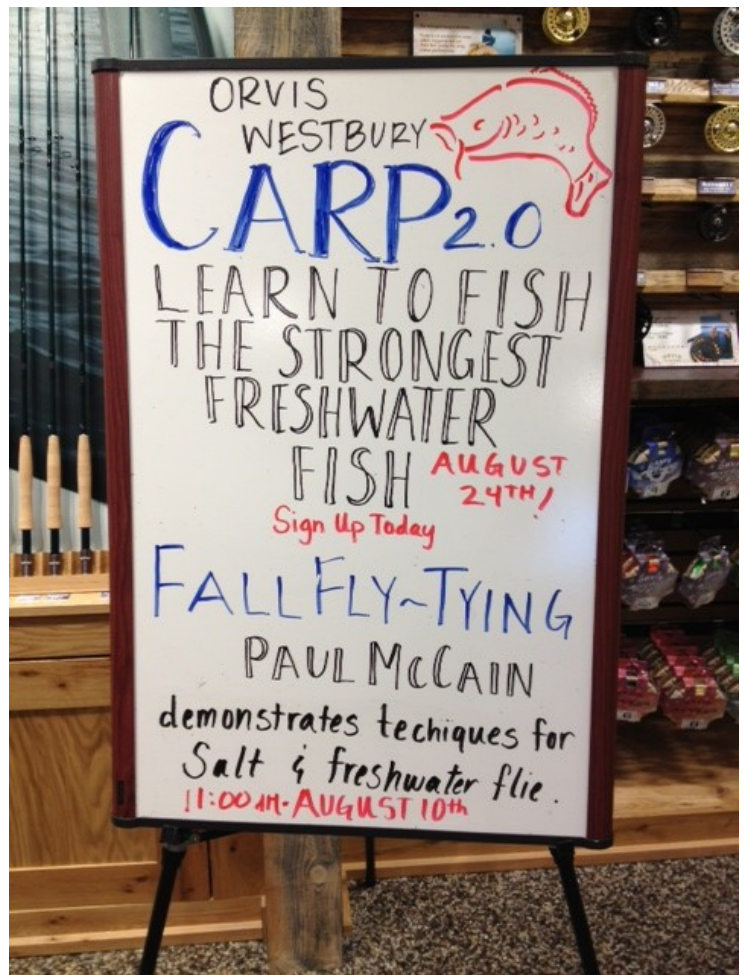 ORVIS
WESTBURY
CARP 2.0
LEARN TO FISH
THE STRONGEST
FRESHWATER
FISH
AUGUST
24TH!
Sign Up Today
FALL FLY~TYING
PAUL MCCAIN
demonstrates techiques for
Salt & freshwater flie.
11:00 AM - AUGUST 10th